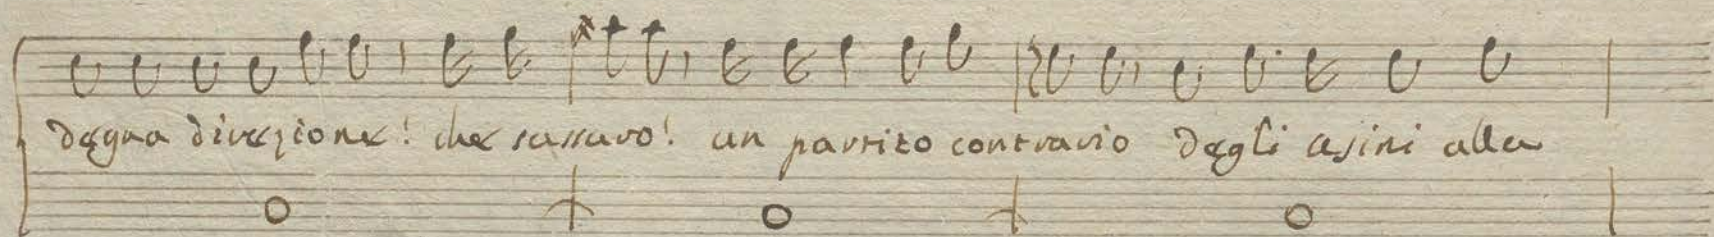 degna direzione! che sussuro! un partito contrario degli asini alla